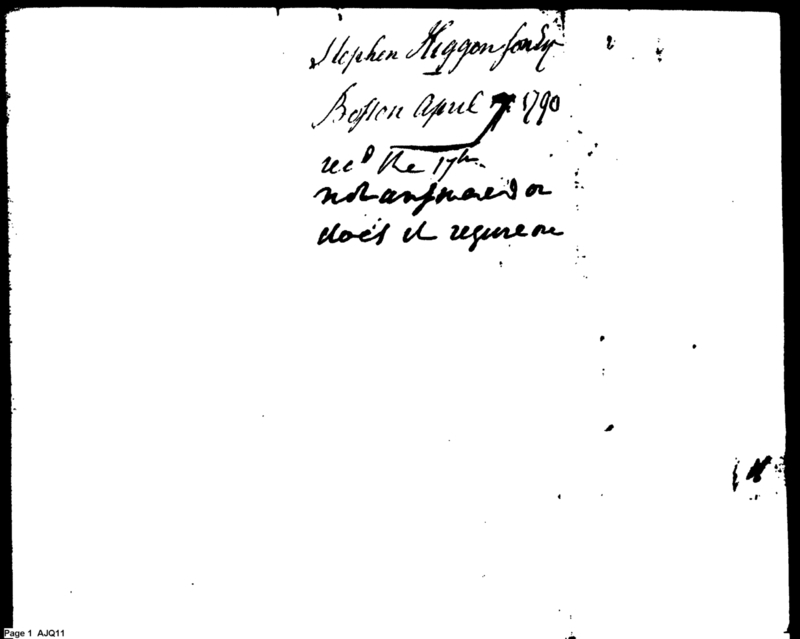 Stephen Higgonson Esqr
Boston April 7 1790
recd the 17th
not answered or
does it requere
Page 1 AJQ11